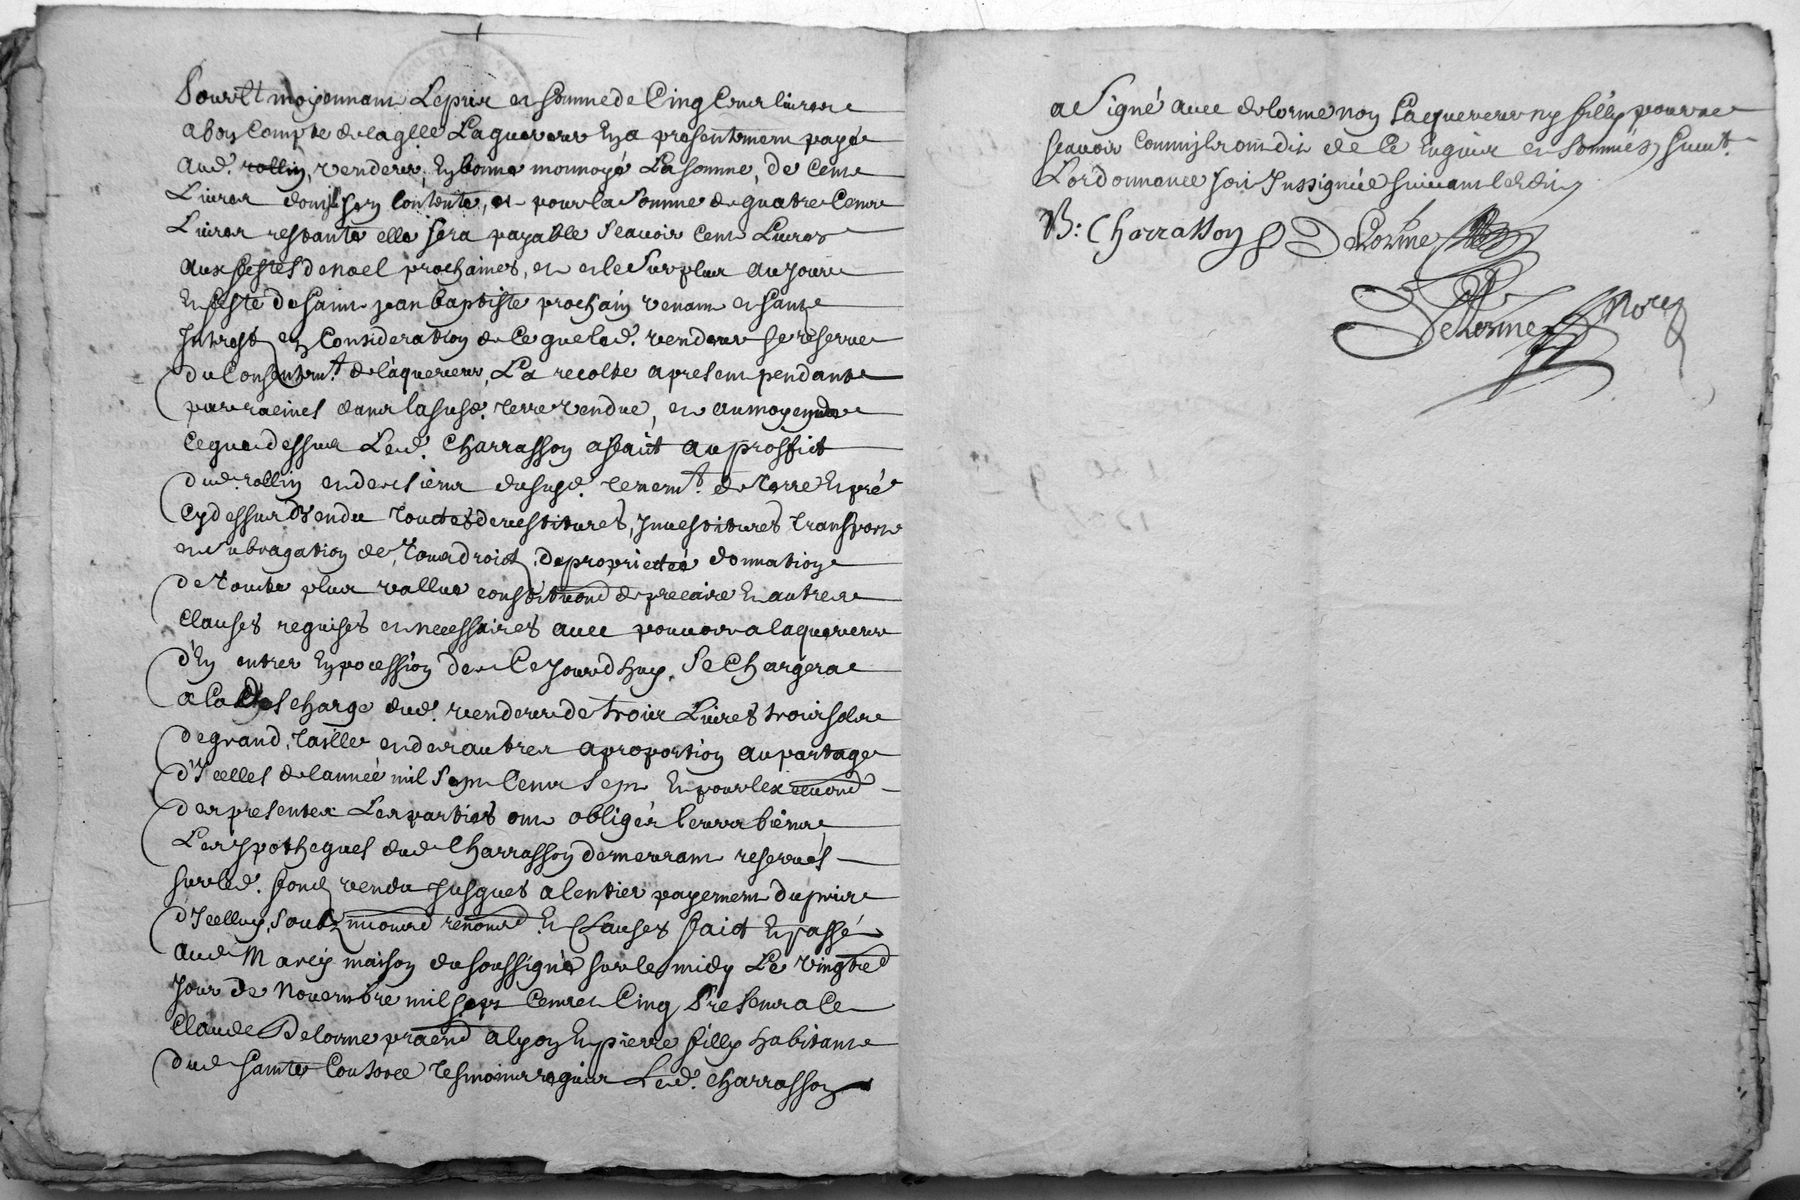 Pour Et moyennant Le prix et somme de Cinq Cent livres
a bon Compte de laqlle Laquereur En a presentement payé
aud. rollin, vendeur, En bonne monnoye La somme, de cent
Livres dont son Contente, et pour la somme de quatre Cent
Livres restante elle sera payable Scavoir cent Livres
aux festes de noel prochaines, et et le Surplus au Jour
Et feste de Saint jean baptiste prochain venant et sans
Interest en Consideration de Ce que led. vendeur se reserve
du Consentemt. de laquereur, La recolte a present pendante
par racines dans la susd. Terre vendue, et au moyen de
Ce que dessus Led. Charrasson a faict au proffict
dud. rollin et des siens du susd. Tenemt. de Terre Et pré
Cy dessus Vendu Touttes devestitures, Investitures Transport
et subrogation de Tous droict, de proprietté donnation
de Toutte plus vallue constituond de precaire Et autres
Clauses requises et necessaires avec pouvoir a laquereur
d'En entrer En pocession des Ce Jourdhuy, Se Chargera
a la descharge dud. vendeur de trois Livres trois sols
de grand, Taille et des autres a proportion au partage
d'Icelles de lannée mil Sept Cent Sept Et pour lex
des presentes Les parties ont obligés leurs biens
Les Ypotheques dud Charrasson demeurant reservés
sur led. fond vendu Jusques a lentier payement du prix
d'Icelluy, Soubz renond Et Clauses faict Et passé
aud Marcy maison du soussigné sur le midy Le vingt
Jour de Novembre mil sept Cent et Cinq Presents a Ce
Claude Delorme praend a lyon Et pierre filly habitant
dud Sainte Consorce Tesmoins requis Led. Charrasson
a Signé avec delorme non Laquereur ny filly pour ne
scavoir comme ilz ont dit de Ce Enquis et Sommés, suivt.
L'ordonnance soit Inssignuée suivant ledit
B: Charrasson Delorme
Delorme Nore